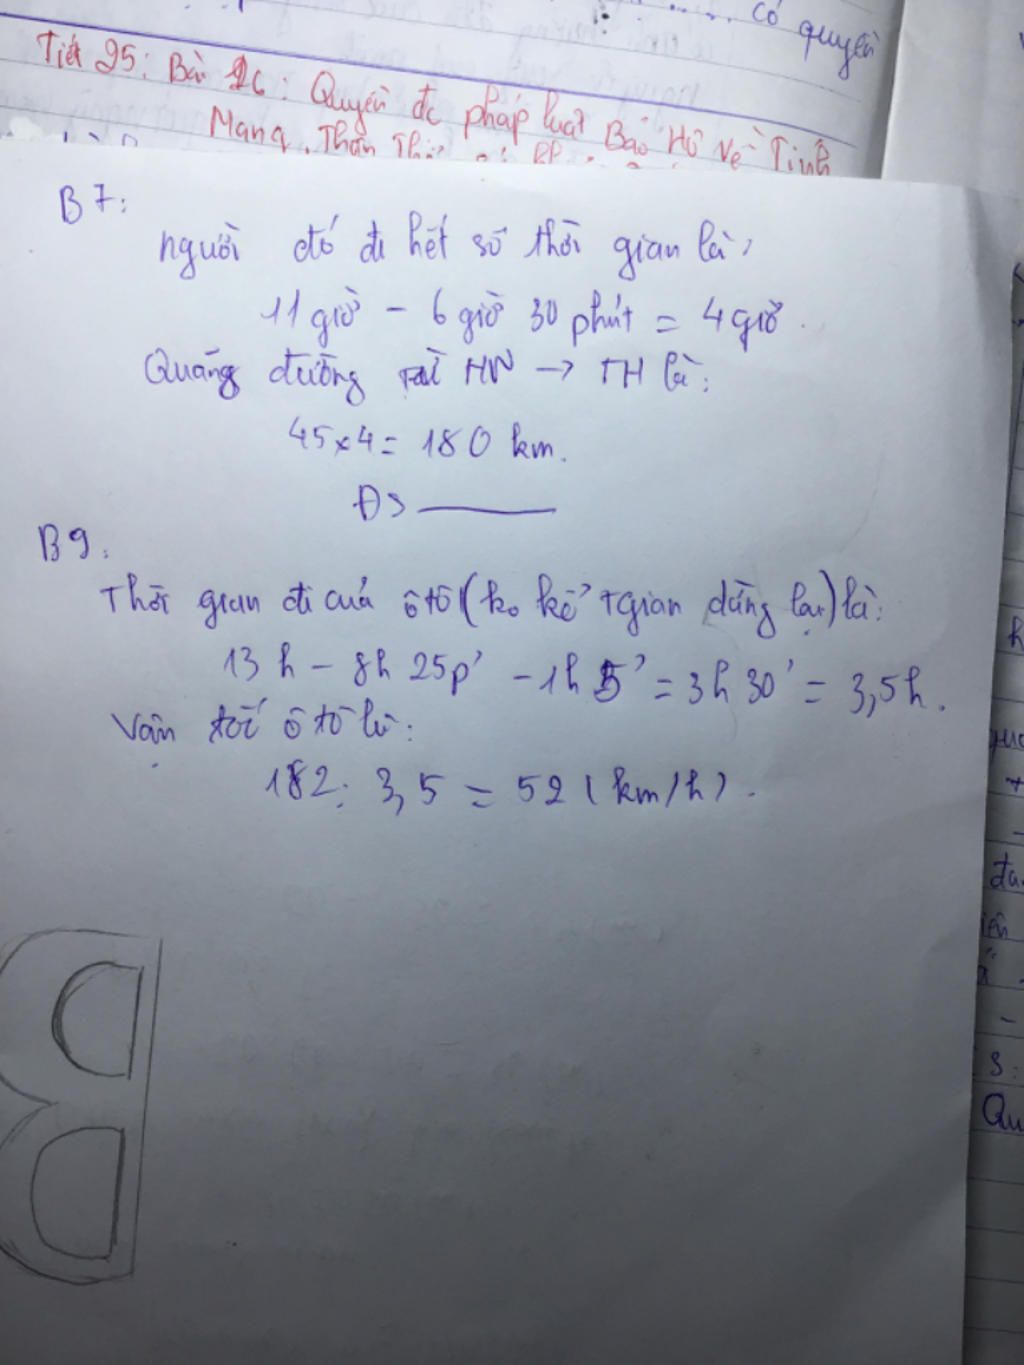 có quyền
Tiết 25: Bài 16: Quyền đc pháp luật Bảo Hộ về Tính
Mạng, Thân
B7:
người đó đi hết số thời gian là:
11 giờ - 6 giờ 30 phút = 4 giờ.
Quãng đường HN → TH là:
45 x 4 = 180 km.
ĐS
B9:
Thời gian đi của ô tô (ko kể tgian dừng lại) là:
13 h - 8h 25p' - 1h 5' = 3h 30' = 3,5h.
Vận tốc ô tô là:
182 : 3,5 = 52 (km/h).
h
đa
-
S:
Qu